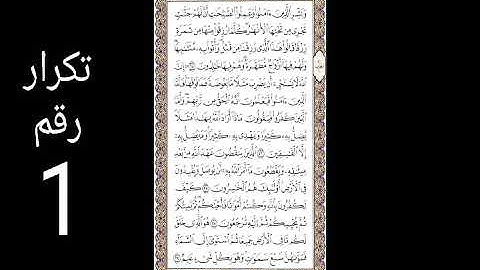 تكرار
رقم
1
وَبَشِّرِ ٱلَّذِينَ ءَامَنُوا۟ وَعَمِلُوا۟ ٱلصَّٰلِحَٰتِ أَنَّ لَهُمْ جَنَّٰتٍ
تَجْرِى مِن تَحْتِهَا ٱلْأَنْهَٰرُ كُلَّمَا رُزِقُوا۟ مِنْهَا مِن ثَمَرَةٍ
رِّزْقًا قَالُوا۟ هَٰذَا ٱلَّذِى رُزِقْنَا مِن قَبْلُ وَأُتُوا۟ بِهِۦ مُتَشَٰبِهًا
وَلَهُمْ فِيهَآ أَزْوَٰجٌ مُّطَهَّرَةٌ وَهُمْ فِيهَا خَٰلِدُونَ ۝٢٥ إِنَّ
ٱللَّهَ لَا يَسْتَحْىِۦٓ أَن يَضْرِبَ مَثَلًا مَّا بَعُوضَةً فَمَا فَوْقَهَا فَأَمَّا
ٱلَّذِينَ ءَامَنُوا۟ فَيَعْلَمُونَ أَنَّهُ ٱلْحَقُّ مِن رَّبِّهِمْ وَأَمَّا
ٱلَّذِينَ كَفَرُوا۟ فَيَقُولُونَ مَاذَآ أَرَادَ ٱللَّهُ بِهَٰذَا مَثَلًا
يُضِلُّ بِهِۦ كَثِيرًا وَيَهْدِى بِهِۦ كَثِيرًا وَمَا يُضِلُّ بِهِۦٓ
إِلَّا ٱلْفَٰسِقِينَ ۝٢٦ ٱلَّذِينَ يَنقُضُونَ عَهْدَ ٱللَّهِ مِنۢ بَعْدِ
مِيثَٰقِهِۦ وَيَقْطَعُونَ مَآ أَمَرَ ٱللَّهُ بِهِۦٓ أَن يُوصَلَ وَيُفْسِدُونَ
فِى ٱلْأَرْضِ أُو۟لَٰٓئِكَ هُمُ ٱلْخَٰسِرُونَ ۝٢٧ كَيْفَ
تَكْفُرُونَ بِٱللَّهِ وَكُنتُمْ أَمْوَٰتًا فَأَحْيَٰكُمْ ثُمَّ يُمِيتُكُمْ
ثُمَّ يُحْيِيكُمْ ثُمَّ إِلَيْهِ تُرْجَعُونَ ۝٢٨ هُوَ ٱلَّذِى خَلَقَ
لَكُم مَّا فِى ٱلْأَرْضِ جَمِيعًا ثُمَّ ٱسْتَوَىٰٓ إِلَى ٱلسَّمَآءِ
فَسَوَّىٰهُنَّ سَبْعَ سَمَٰوَٰتٍ وَهُوَ بِكُلِّ شَىْءٍ عَلِيمٌ ۝٢٩